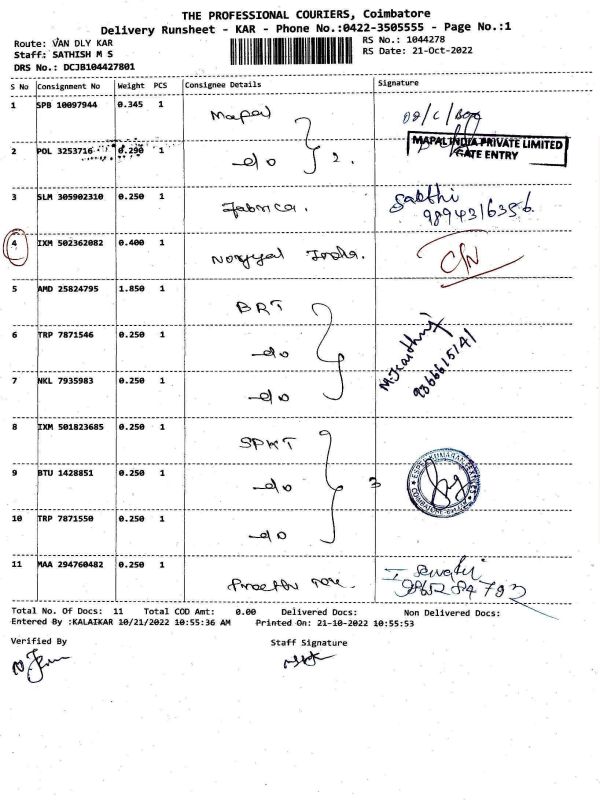 THE PROFESSIONAL COURIERS, Coimbatore
Delivery Runsheet - KAR - Phone No.:0422-3505555 - Page No.:1
Route: VAN DLY KAR RS No.: 1044278
Staff: SATHISH M S RS Date: 21-Oct-2022
DRS No.: DCJB104427801
S No Consignment No Weight PCS Consignee Details Signature
1 SPB 10097944 0.345 1 Mapal
2 POL 3253716 0.290 1 do 2. MAPAL INDIA PRIVATE LIMITED
GATE ENTRY
3 SLM 305902310 0.250 1 Fabrica. Sakthi
9894316356
4 IXM 502362082 0.400 1 India. C/N
5 AMD 25824795 1.850 1 BRT
6 TRP 7871546 0.250 1 do M.Karthi
9366615141
7 NKL 7935983 0.250 1 do
8 IXM 501823685 0.250 1 SPKT
9 BTU 1428851 0.250 1 do 3
10 TRP 7871550 0.250 1 do
11 MAA 294760482 0.250 1 Preethi
9865284793
Total No. Of Docs: 11 Total COD Amt: 0.00 Delivered Docs: Non Delivered Docs:
Entered By :KALAIKAR 10/21/2022 10:55:36 AM Printed On: 21-10-2022 10:55:53
Verified By Staff Signature